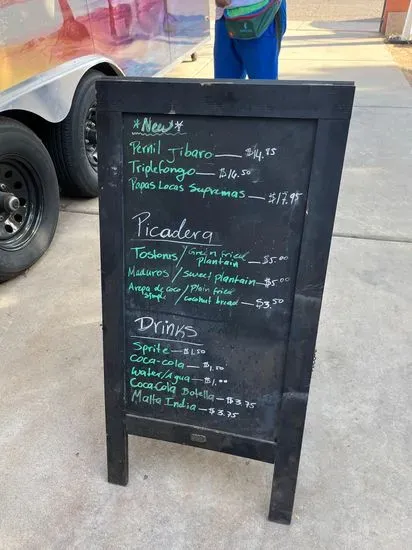 *New*
Pernil Jibaro — $14.95
Triplefongo — $16.50
Papas Locas Supremas — $17.95
Picadera
Tostones / Green fried plantain — $5.00
Maduros / sweet plantain — $5.00
Arepa de coco simple / Plain fried coconut bread — $3.50
Drinks
Sprite — $1.50
Coca-cola — $1.50
Water/Agua — $1.00
CocaCola Botella — $3.75
Malta India — $3.75